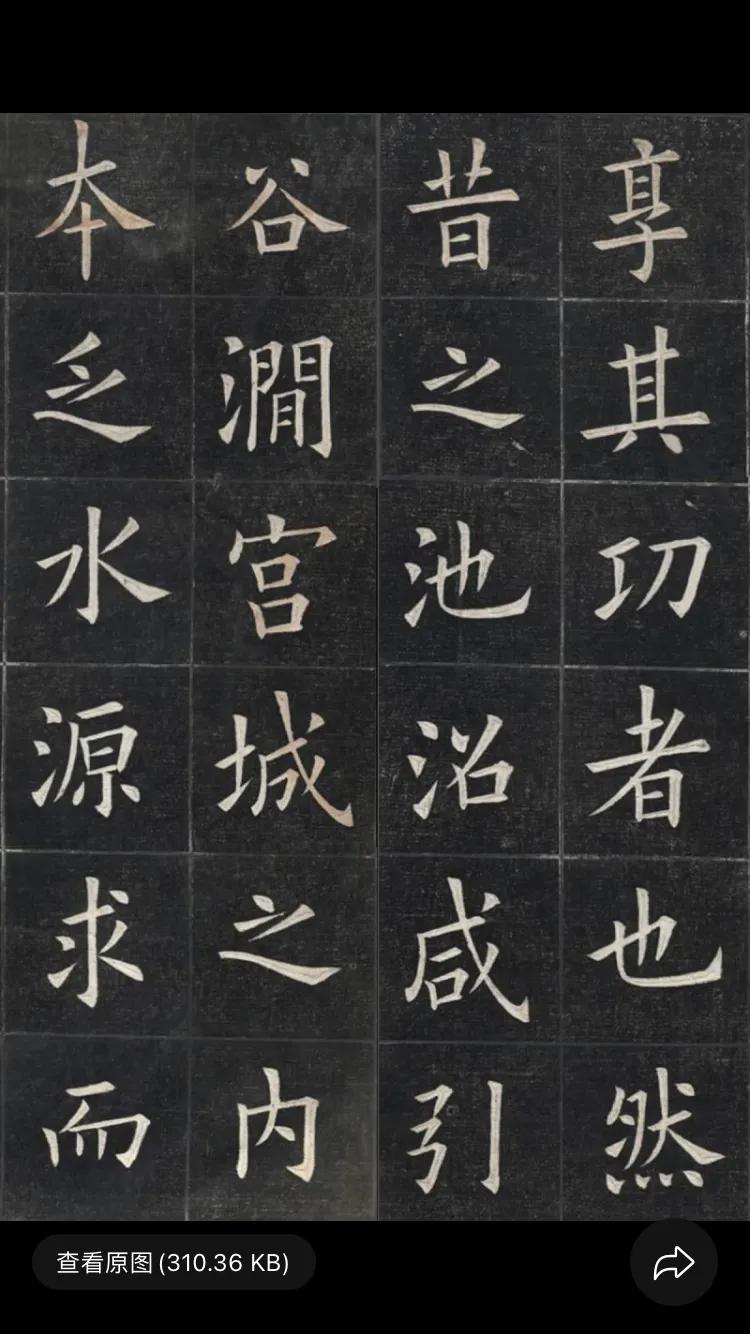 享其功者也然
昔之池沼咸引
谷澗宫城之内
本乏水源求而
查看原图(310.36 KB)